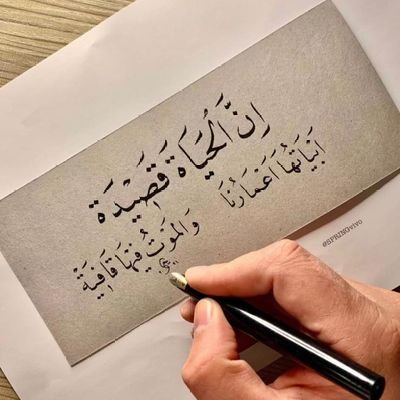 اِنَّ الْحَيَاةَ قَصَيْدَة
اَبيَاتُهَا اَعْمَارُنَا وَالمَوَتُ فيْهَا قَافِيَةٌ
@SPRINGvivo